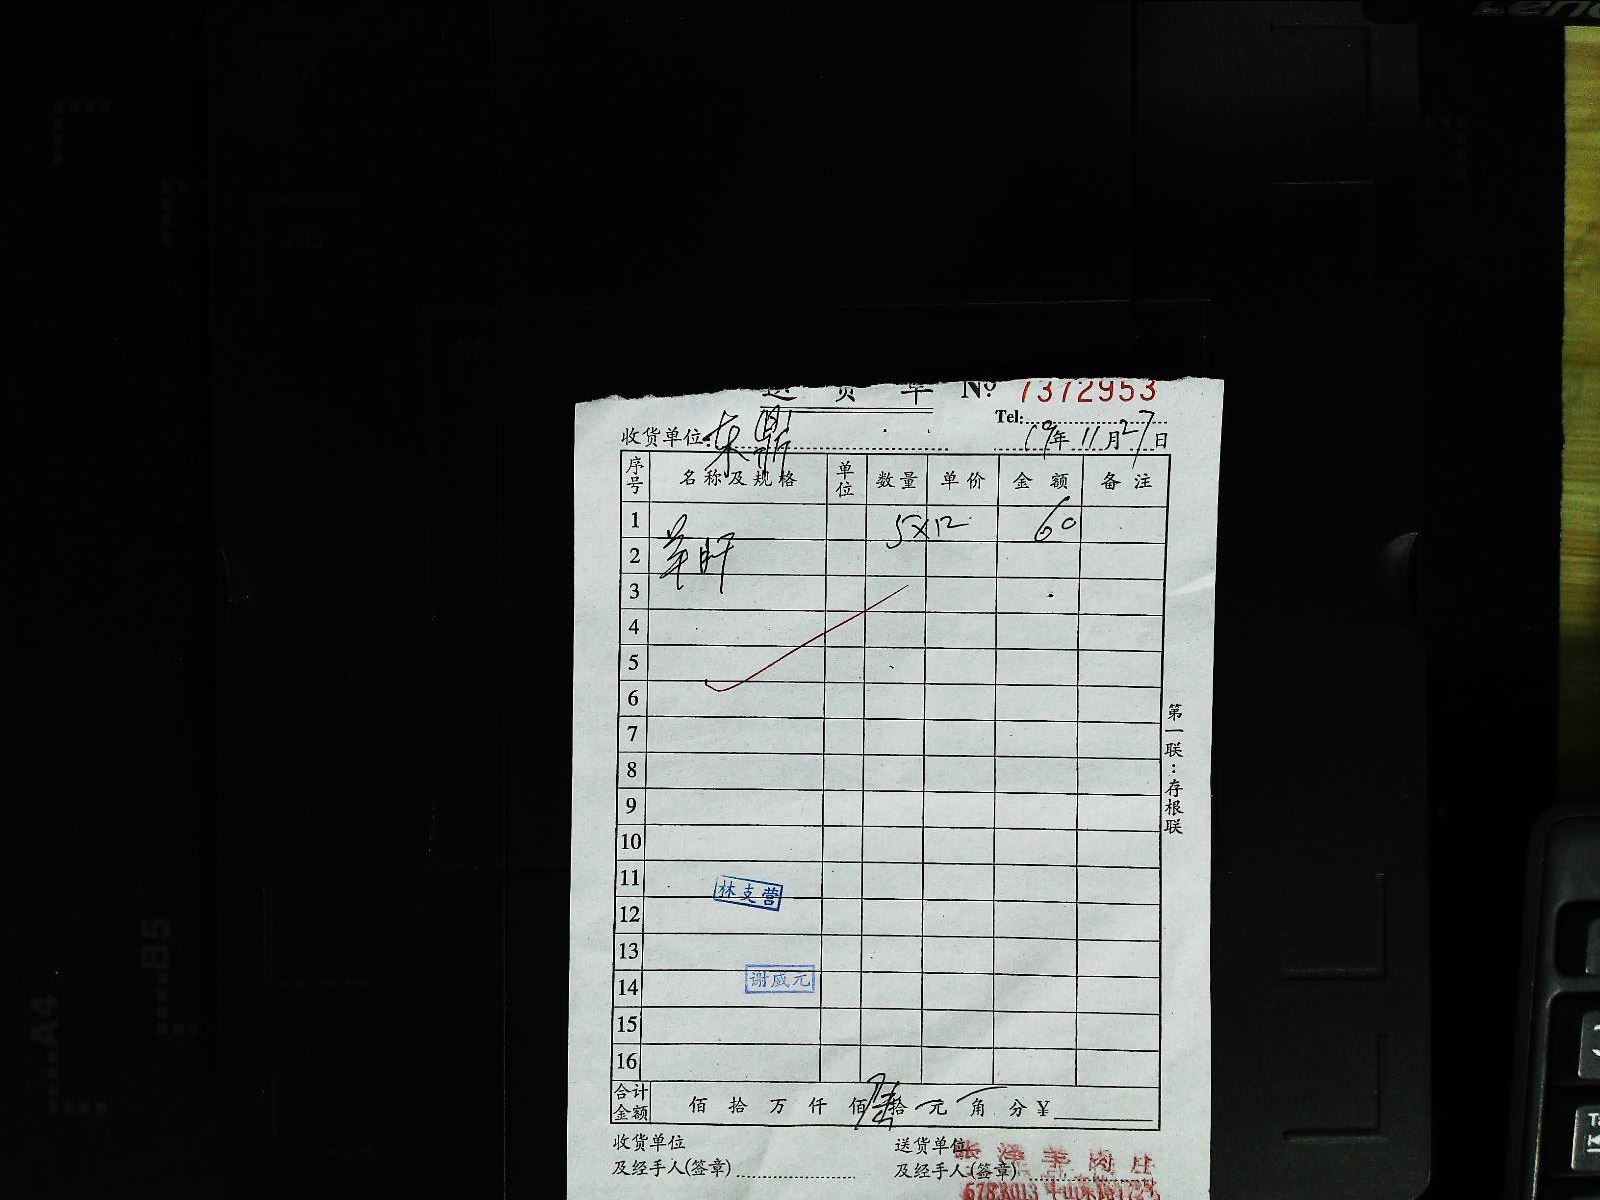 送货单 Nº 7372953
Tel:
收货单位: 东鼎 19年11月27日
序号 名称及规格 单位 数量 单价 金额 备注
1 5×12 60
2 羊肝
3
4
5
6
7
8
9
10
11
12
13
14
15
16
林支营
谢威元
合计金额 佰 拾 万 仟 佰 陆拾 元 角 分 ¥
收货单位 送货单位
及经手人(签章) 及经手人(签章)
张泽羊肉庄
第一联:存根联
A4
B5